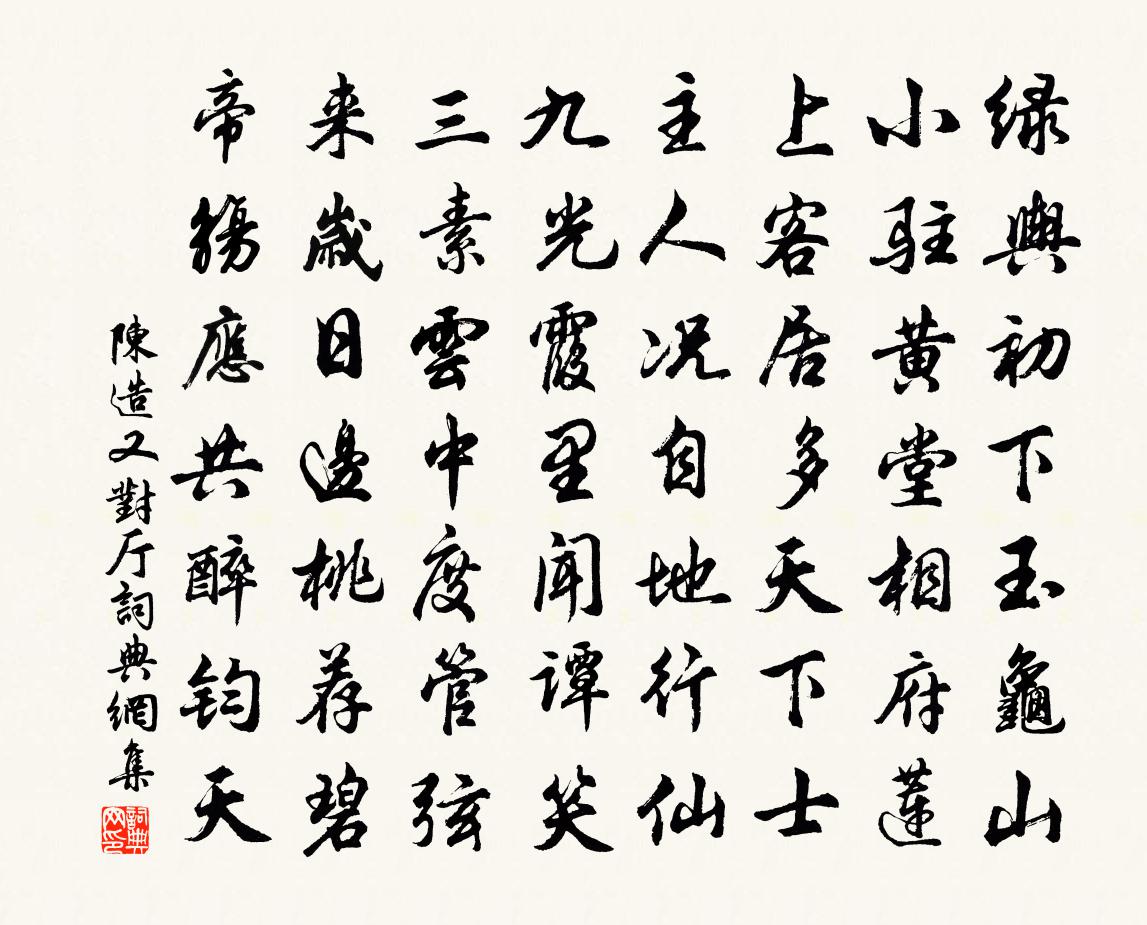 绿輿初下玉龜山
小駐黄堂相府蓮
上客居多天下士
主人况自地行仙
九光霞里闻谭笑
三素雲中度管弦
来歲日邊桃荐碧
帝觴應共醉钧天
陳造又對厅詞典網集
詞典网印